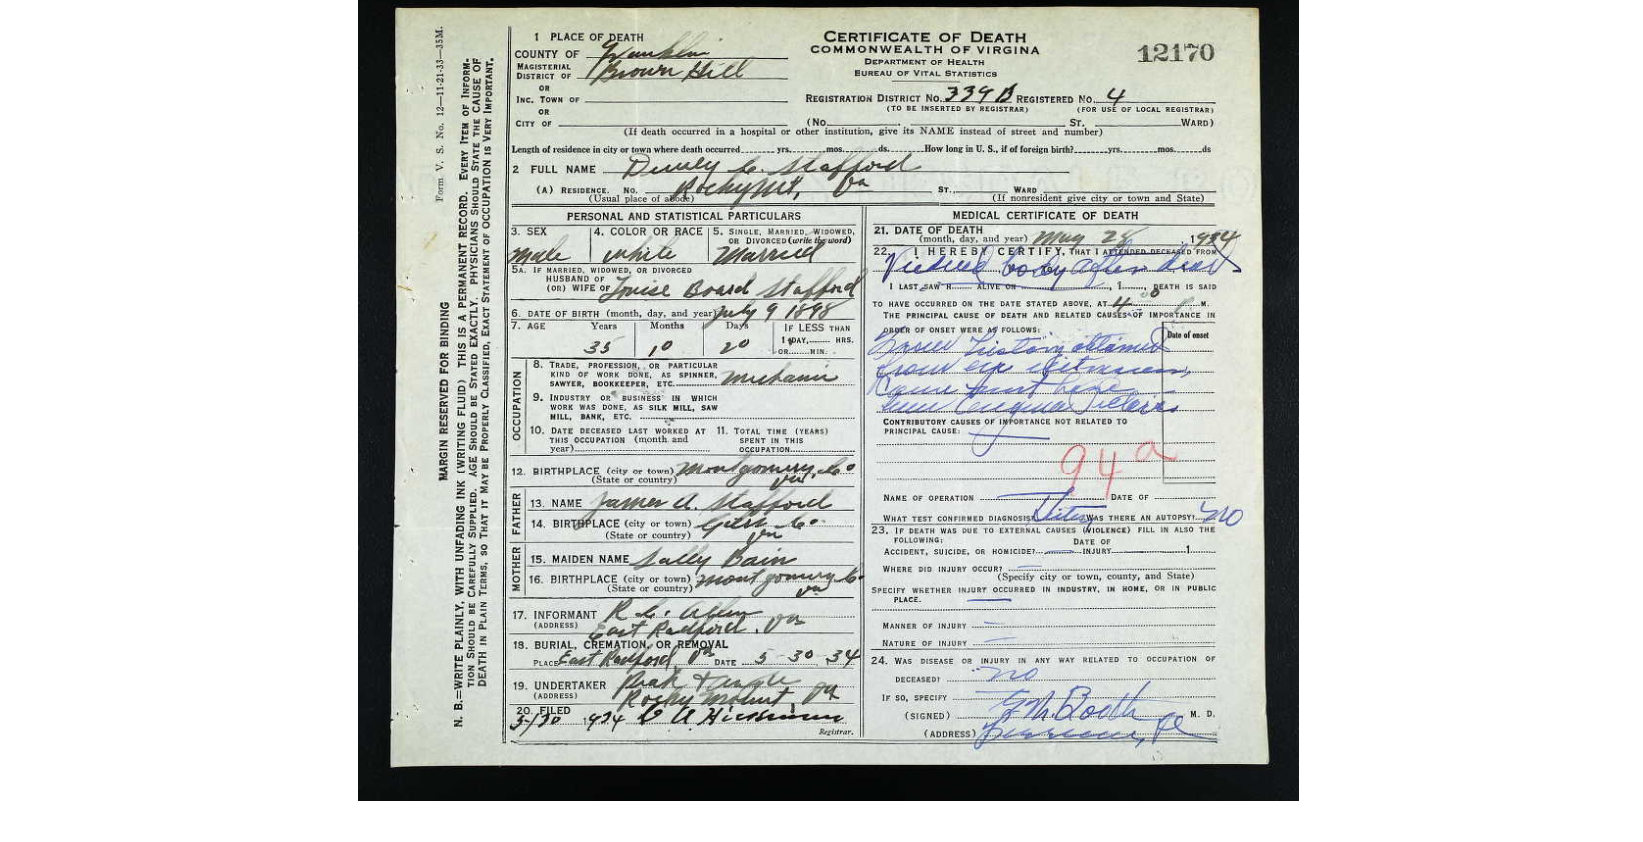 MARGIN RESERVED FOR BINDING
N. B.—WRITE PLAINLY, WITH UNFADING INK (WRITING FLUID) THIS IS A PERMANENT RECORD. EVERY ITEM OF INFORM-
TION SHOULD BE CAREFULLY SUPPLIED. AGE SHOULD BE STATED EXACTLY. PHYSICIANS SHOULD STATE THE CAUSE OF
DEATH IN PLAIN TERMS, SO THAT IT MAY BE PROPERLY CLASSIFIED, EXACT STATEMENT OF OCCUPATION IS VERY IMPORTANT.
Form V. S. No. 12—11-21-33—35M.
CERTIFICATE OF DEATH
COMMONWEALTH OF VIRGINA
DEPARTMENT OF HEALTH
BUREAU OF VITAL STATISTICS
12170
1 PLACE OF DEATH
COUNTY OF Franklin
MAGISTERIAL DISTRICT OF Brown Hill
OR
INC. TOWN OF
OR
CITY OF
REGISTRATION DISTRICT NO. 339 B REGISTERED NO. 4
(TO BE INSERTED BY REGISTRAR) (FOR USE OF LOCAL REGISTRAR)
(No. ST. WARD)
(If death occurred in a hospital or other institution, give its NAME instead of street and number)
Length of residence in city or town where death occurred yrs. mos. ds. How long in U. S., if of foreign birth? yrs. mos. ds
2 FULL NAME Dewey C. Stafford
(A) RESIDENCE. NO. Rocky Mt, Va ST. WARD
(Usual place of abode) (If nonresident give city or town and State)
PERSONAL AND STATISTICAL PARTICULARS
3. SEX 4. COLOR OR RACE 5. SINGLE, MARRIED, WIDOWED, OR DIVORCED (write the word)
Male white Married
5A. IF MARRIED, WIDOWED, OR DIVORCED
HUSBAND OF
(OR) WIFE OF Louise Board Stafford
6. DATE OF BIRTH (month, day, and year) July 9 1898
7. AGE Years Months Days IF LESS THAN
1 DAY, HRS.
OR MIN.
35 10 20
OCCUPATION
8. TRADE, PROFESSION, OR PARTICULAR
KIND OF WORK DONE, AS SPINNER,
SAWYER, BOOKKEEPER, ETC. Mechanic
9. INDUSTRY OR BUSINESS IN WHICH
WORK WAS DONE, AS SILK MILL, SAW
MILL, BANK, ETC.
10. DATE DECEASED LAST WORKED AT
THIS OCCUPATION (month and
year)
11. TOTAL TIME (YEARS)
SPENT IN THIS
OCCUPATION
12. BIRTHPLACE (city or town) Montgomery Co
(State or country) Va
FATHER
13. NAME James A. Stafford
14. BIRTHPLACE (city or town) Giles Co.
(State or country) Va
MOTHER
15. MAIDEN NAME Sally Bain
16. BIRTHPLACE (city or town) Montgomery Co
(State or country) Va
17. INFORMANT R. C. Allen
(ADDRESS) East Radford, Va
18. BURIAL, CREMATION, OR REMOVAL
PLACE East Radford Va DATE 5-30-34
19. UNDERTAKER
(ADDRESS) Rocky Mount, Va
20. FILED 5/30 1934
Registrar.
MEDICAL CERTIFICATE OF DEATH
21. DATE OF DEATH
(month, day, and year) May 28 1934
22. I HEREBY CERTIFY, THAT I ATTENDED DECEASED FROM
Viewed body after dead
I LAST SAW H ALIVE ON 1 DEATH IS SAID
TO HAVE OCCURRED ON THE DATE STATED ABOVE, AT 4 00 P. M.
THE PRINCIPAL CAUSE OF DEATH AND RELATED CAUSES OF IMPORTANCE IN
ORDER OF ONSET WERE AS FOLLOWS:
Date of onset
From history obtained
from eye witnesses,
Cause must have
been Angina Pectoris
CONTRIBUTORY CAUSES OF IMPORTANCE NOT RELATED TO
PRINCIPAL CAUSE:
94a
NAME OF OPERATION DATE OF
WHAT TEST CONFIRMED DIAGNOSIS? WAS THERE AN AUTOPSY? No
23. IF DEATH WAS DUE TO EXTERNAL CAUSES (VIOLENCE) FILL IN ALSO THE
FOLLOWING:
ACCIDENT, SUICIDE, OR HOMICIDE? DATE OF INJURY 1
WHERE DID INJURY OCCUR?
(Specify city or town, county, and State)
SPECIFY WHETHER INJURY OCCURRED IN INDUSTRY, IN HOME, OR IN PUBLIC
PLACE.
MANNER OF INJURY
NATURE OF INJURY
24. WAS DISEASE OR INJURY IN ANY WAY RELATED TO OCCUPATION OF
DECEASED? no
IF SO, SPECIFY
(SIGNED) Booth M. D.
(ADDRESS)